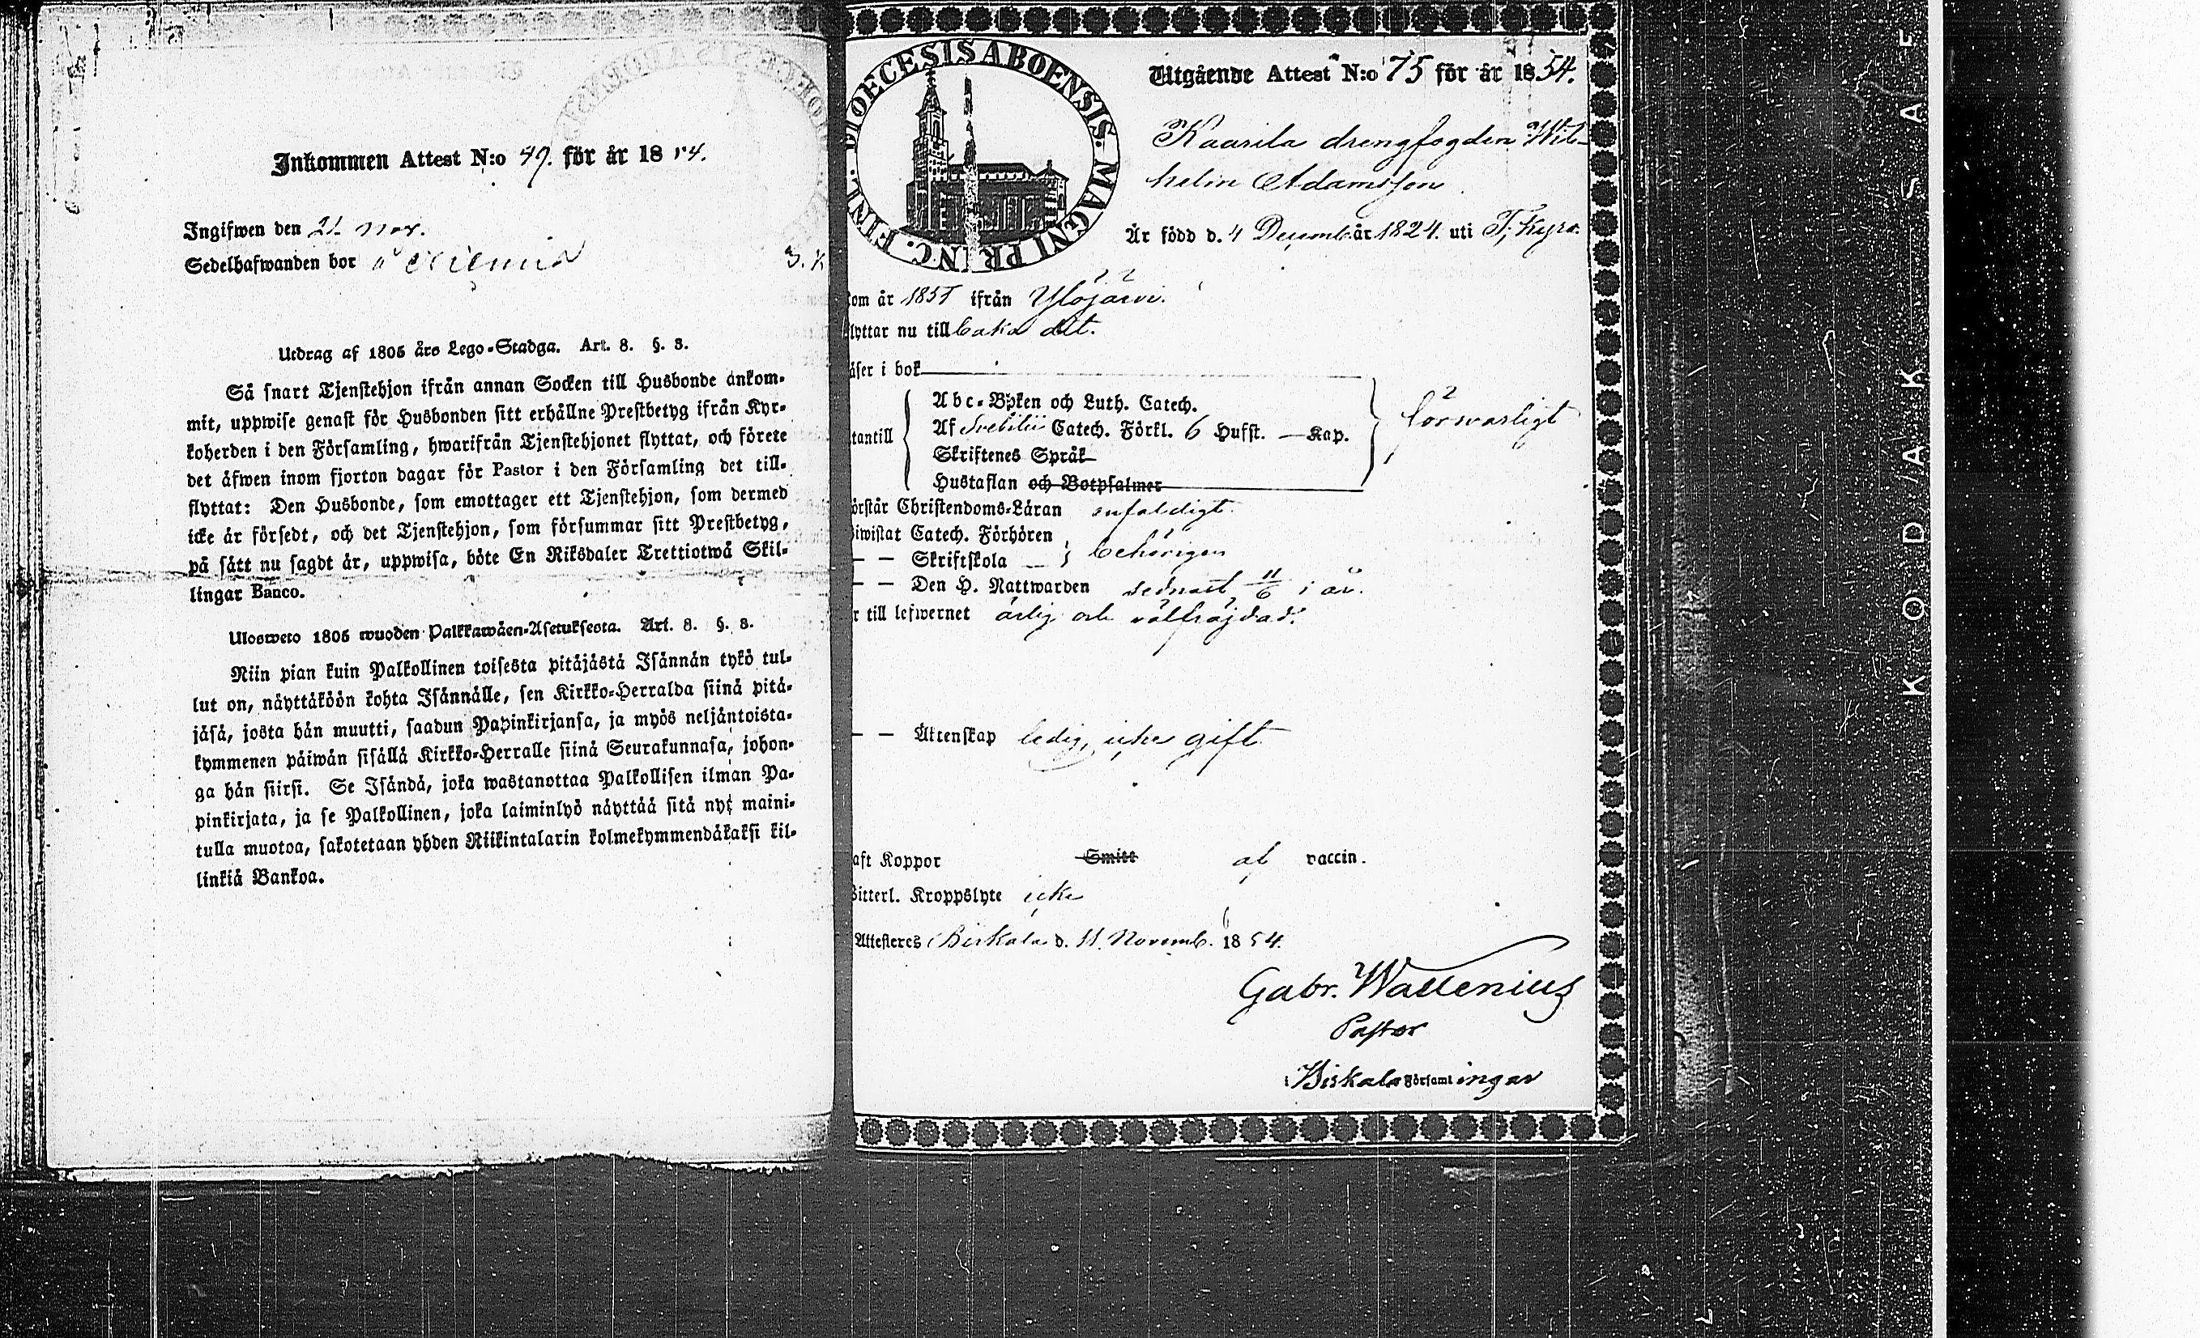 Inkommen Attest N:o 49. för år 1854.
Ingifwen den 21 nov.
Sedelhafwanden bor å
Utdrag af 1805 års Lego-Stadga. Art. 8. §. 3.
Så snart Tjenstehjon ifrån annan Socken till Husbonde ankom-
mit, uppwise genast för Husbonden sitt erhållne Prestbetyg ifrån Kyr-
koherden i den Församling, hwarifrån Tjenstehjonet flyttat, och förete
det äfwen inom fjorton dagar för Pastor i den Församling det till-
flyttat: Den Husbonde, som emottager ett Tjenstehjon, som dermed
icke är försedt, och det Tjenstehjon, som försummar sitt Prestbetyg,
på sätt nu sagdt är, uppwisa, böte En Riksdaler Trettiotwå Skil-
lingar Banco.
Ulosweto 1805 wuoden Palkkawäen-Asetuksesta. Art. 8. §. 3.
Niin pian kuin Palkollinen toisesta pitäjästä Isännän tykö tul-
lut on, näyttäköön kohta Isännälle, sen Kirkko-Herralda siinä pitä-
jäsä, josta hän muutti, saadun Papinkirjansa, ja myös neljäntoista-
kymmenen päiwän sisällä Kirkko-Herralle siinä Seurakunnasa, johon-
ga hän siirsi. Se Isändä, joka wastanottaa Palkollisen ilman Pa-
pinkirjata, ja se Palkollinen, joka laiminlyö näyttää sitä nyt maini-
tulla muotoa, sakotetaan yhden Riikintalarin kolmekymmendäkaksi kil-
linkiä Bankoa.
DIOECESIS ABOENSIS. MAGNI PRINC. FINL.
Utgående Attest N:o 75 för år 1854.
Kaarila drengfogden Wil-
helm Adamsson.
Är född d. 4 Decemb. år 1824. uti T. Kyro.
om år 1851 ifrån Ylöjärwi.
lyttar nu till baka dit.
äser i bok
Abc-Boken och Luth. Catech.
tantill Af Svebilii Catech. Förkl. 6 Hufst. — Kap. försvarligt
Skriftenes Språk
Hustaflan och Botpsalmer
örstår Christendoms-Läran enfaldigt.
iwistat Catech. Förhören
— — Skriftskola behörigen
— — Den H. Nattwarden sednast 11/6 i år.
r till lefwernet ärlig och välfräjdad.
— — Äktenskap ledig, icke gift.
aft Koppor Smitt af vaccin.
itterl. Kroppslyte icke
Attesteres Birkala d. 11 Novemb. 1854.
Gabr. Wallenius
Pastor
i Birkala Församlingar
KODAK SAFE